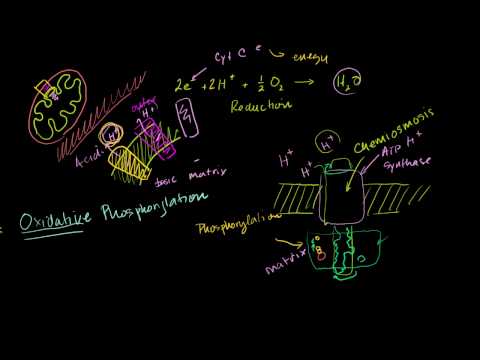 Cyt C e⁻ energy
2e⁻ + 2H⁺ + ½ O₂ → H₂O
Reduction
outer
H⁺
H⁺
Acidic
basic matrix
Oxidative Phosphorylation
H⁺
H⁺
H⁺
Chemiosmosis
ATP H⁺
Synthase
Phosphorylation
matrix